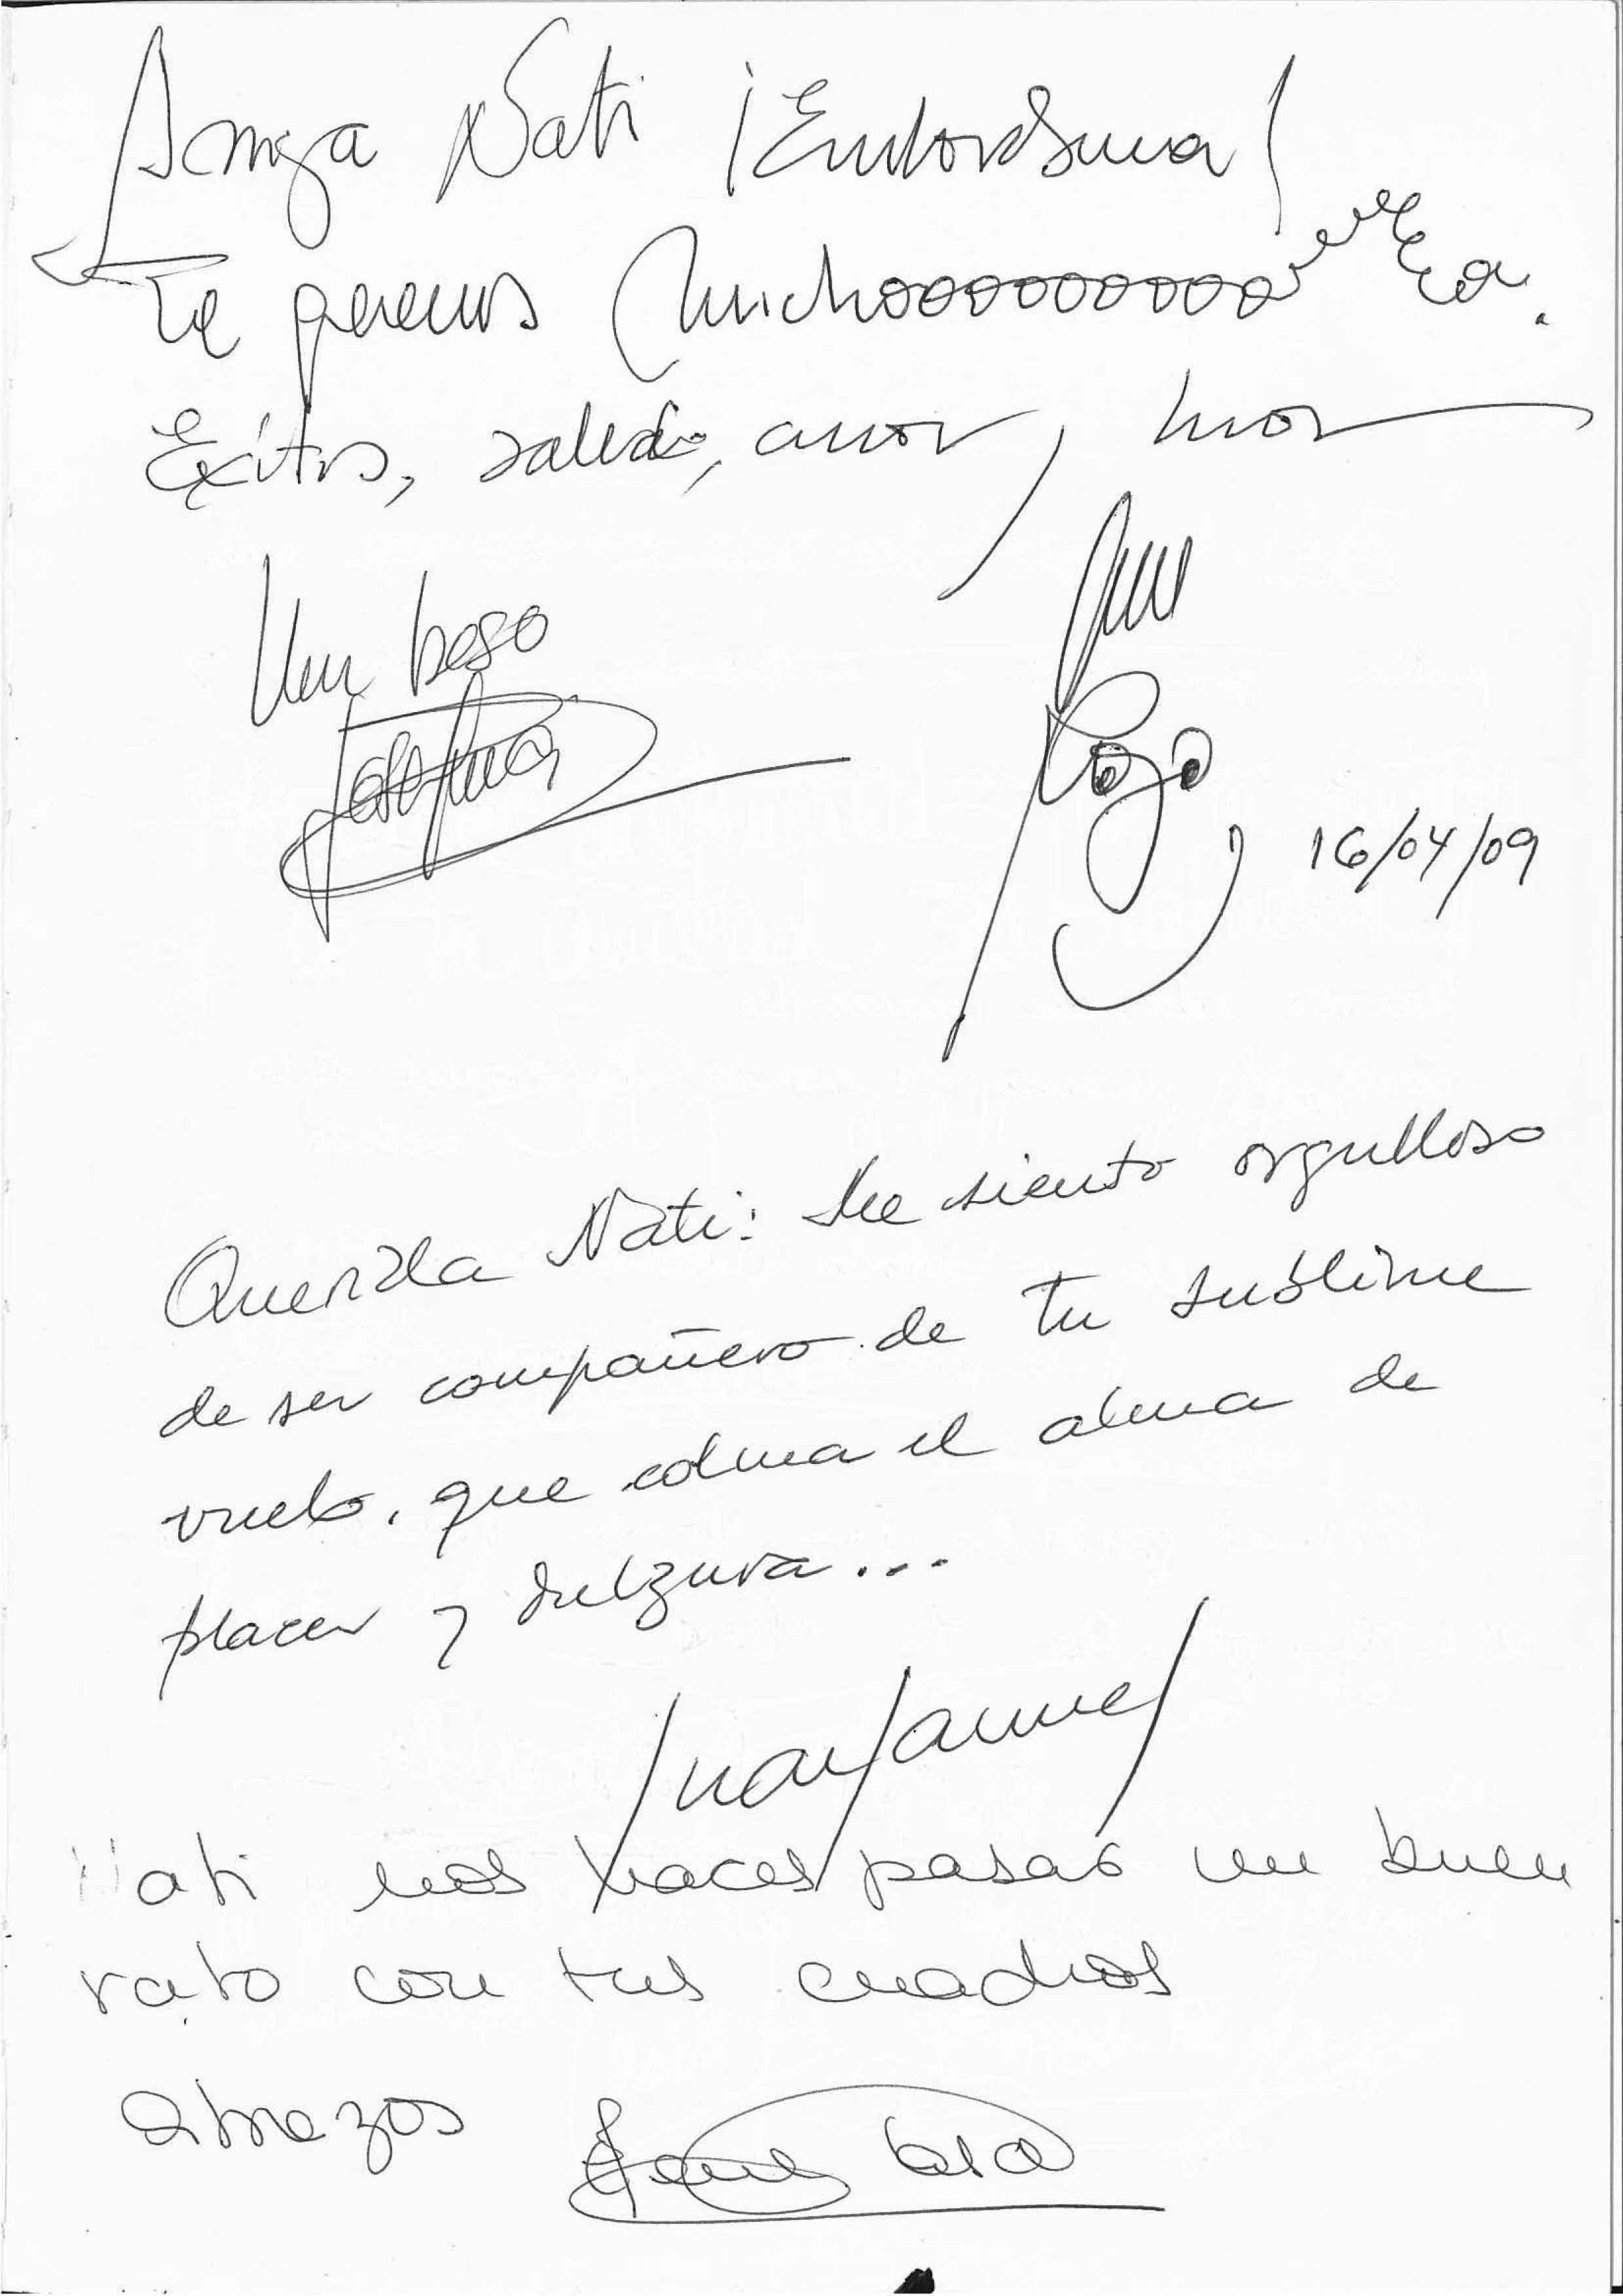 Amiga Nati ¡Enhorabuena!
Te queremos Muchoooooooooo
Exitos, salud, amor,
Un beso
Josefina
Rojo
16/04/09
Querida Nati: Me siento orgulloso
de ser compañero de tu sublime
vuelo, que colma el alma de
placer y dulzura...
Juan Manuel
Nati nos haces pasar un buen
rato con tus cuadros
abrazos